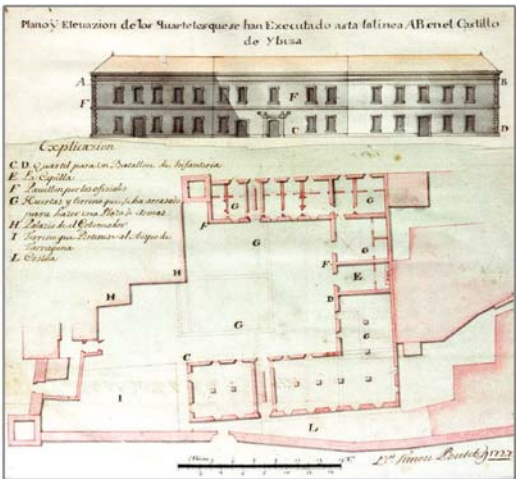 Plano y Elevazion de los Quarteles que se han Executado asta la linea AB en el Castillo
de Ybiza
A
B
F
F
C
D
Explicazion
C D. Quartel para un Batallon de Infanteria
E La Capilla
F Pavellon por los oficiales
G Huertas y terreno que se ha arrasado
para hazer una Plaza de armas
H Palazio de el Governador
I Terreno que Pertenese al Obispo de
Tarragona
L
G
G
F
G
G
H
F
E
H
D
G
G
C
I
L
Dn. Simon Poulet 1727